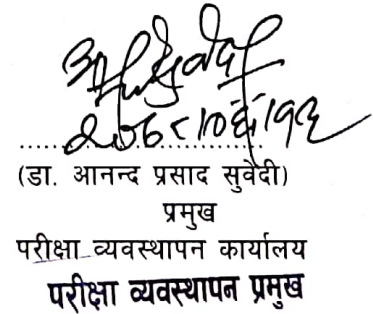 (डा. आनन्द प्रसाद सुवेदी)
प्रमुख
परीक्षा व्यवस्थापन कार्यालय
परीक्षा व्यवस्थापन प्रमुख